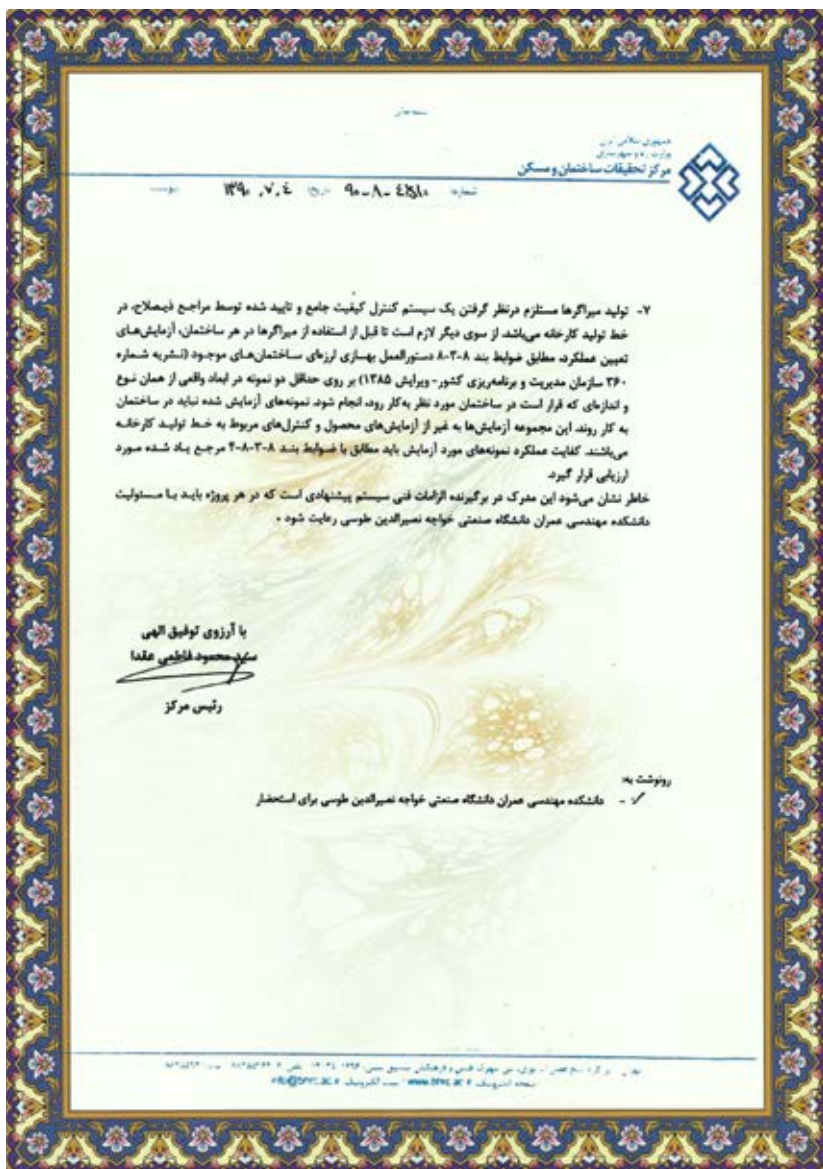 بسمه تعالی
جمهوری اسلامی ایران
وزارت راه و شهرسازی
مرکز تحقیقات ساختمان و مسکن
شماره: تاریخ: ۱۳۹۰,۷,۴ پیوست:
۷- تولید میراگرها مستلزم درنظر گرفتن یک سیستم کنترل کیفیت جامع و تایید شده توسط مراجع ذیصلاح، در
خط تولید کارخانه می‌باشد. از سوی دیگر لازم است تا قبل از استفاده از میراگرها در هر ساختمان، آزمایش‌های
تعیین عملکرد، مطابق ضوابط بند ۸-۳-۸ دستورالعمل بهسازی لرزه‌ای ساختمان‌های موجود (نشریه شماره
۳۶۰ سازمان مدیریت و برنامه‌ریزی کشور- ویرایش ۱۳۸۵) بر روی حداقل دو نمونه در ابعاد واقعی از همان نوع
و اندازه‌ای که قرار است در ساختمان مورد نظر به‌کار رود، انجام شود. نمونه‌های آزمایش شده نباید در ساختمان
به کار روند. این مجموعه آزمایش‌ها به غیر از آزمایش‌های محصول و کنترل‌های مربوط به خط تولید کارخانه
می‌باشند. کفایت عملکرد نمونه‌های مورد آزمایش باید مطابق با ضوابط بند ۸-۳-۸-۴ مرجع یاد شده مورد
ارزیابی قرار گیرد.
خاطر نشان می‌شود این مدرک در برگیرنده الزامات فنی سیستم پیشنهادی است که در هر پروژه باید با مسئولیت
دانشکده مهندسی عمران دانشگاه صنعتی خواجه نصیرالدین طوسی رعایت شود.
با آرزوی توفیق الهی
سید محمود فاطمی عقدا
رئیس مرکز
رونوشت به:
- دانشکده مهندسی عمران دانشگاه صنعتی خواجه نصیرالدین طوسی برای استحضار
www.bhrc.ac.ir info@bhrc.ac.ir